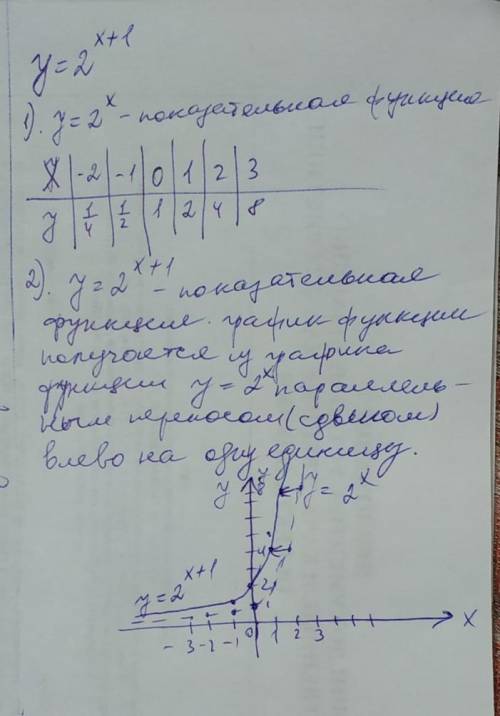 y=2^{x+1}
1). y=2^x - показательная функция
X | -2 | -1 | 0 | 1 | 2 | 3
y | 1/4 | 1/2 | 1 | 2 | 4 | 8
2). y=2^{x+1} - показательная
функция. график функции
получается из графика
функции y=2^x параллель-
ным переносом (сдвигом)
влево на одну единицу.
y 8 y=2^x
4
y=2^{x+1} 2
1
-3 -2 -1 0 1 2 3 X